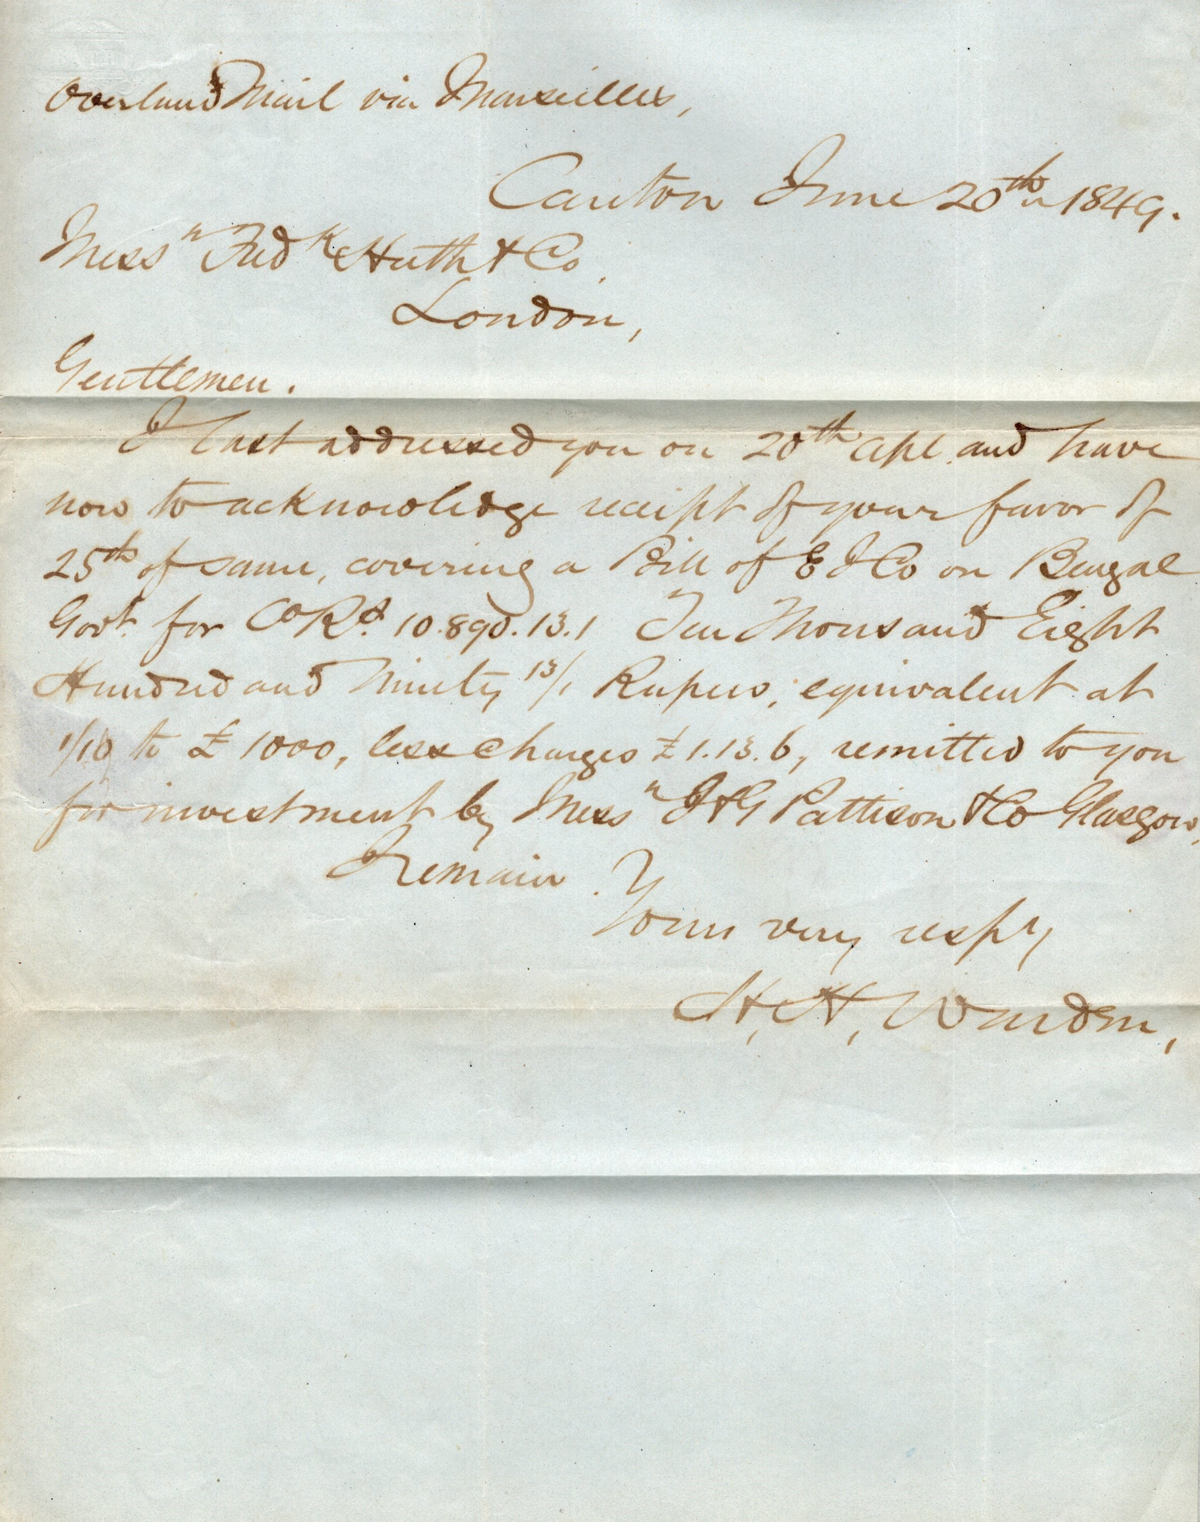 Overland Mail via Marseilles,
Canton June 20th 1849.
Messrs Fredk Huth & Co
London,
Gentlemen.
I last addressed you on 20th Apl. and have
now to acknowledge receipt of your favor of
25th of same, covering a Bill of E I Co on Bengal
Govt. for CoRs 10.890.13.1 Ten Thousand Eight
Hundred and Ninety 13/1 Rupees, equivalent at
1/10 to £1000, less charges £1.13.6, remitted to you
for investment by Messrs J & G Pattison & Co Glasgow,
I remain
Yours very respy
H. H. Warden,